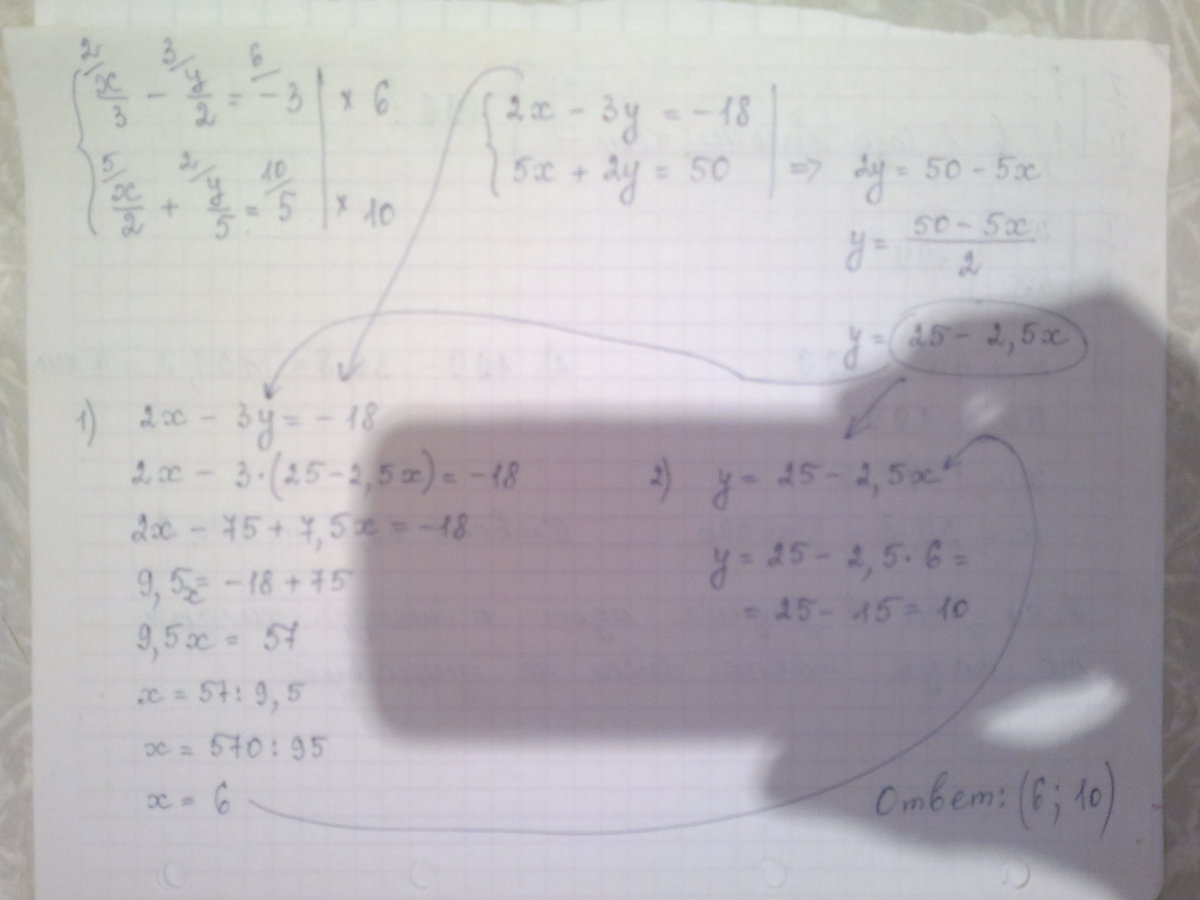 2/ x/3 - 3/ y/2 = 6/ -3 | × 6
5/ x/2 + 2/ y/5 = 10/ 5 | × 10
2x - 3y = -18
5x + 2y = 50 | => 2y = 50 - 5x
y = (50 - 5x)/2
y = 25 - 2,5x
1) 2x - 3y = -18
2x - 3·(25 - 2,5x) = -18
2x - 75 + 7,5x = -18
9,5x = -18 + 75
9,5x = 57
x = 57 : 9,5
x = 570 : 95
x = 6
2) y = 25 - 2,5x
y = 25 - 2,5 · 6 =
= 25 - 15 = 10
Ответ: (6; 10)